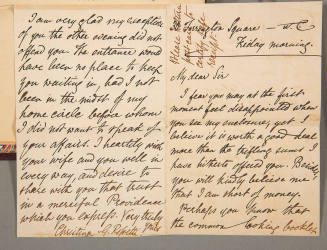 Torrington Square — W.C.
Friday morning.
My dear Sir
I fear you may at the first
moment feel disappointed when
you see my customer; yet I
believe it is worth a good deal
more than the trifling sums I
have hitherto offered you. Besides
you will kindly believe me
that I am short of money.
Perhaps you know that
the common looking cockle
I am very glad my reception
of you the other evening did not
offend you. The entrance would
have been no place to keep
you waiting in, had I not
been in the midst of my
home circle before whom
I did not want to speak of
your affairs. I heartily wish
your wife and you well in
every way, and desire to
share with you that trust
in a merciful Providence
which you express. Very truly
yours
Christina G. Rossetti